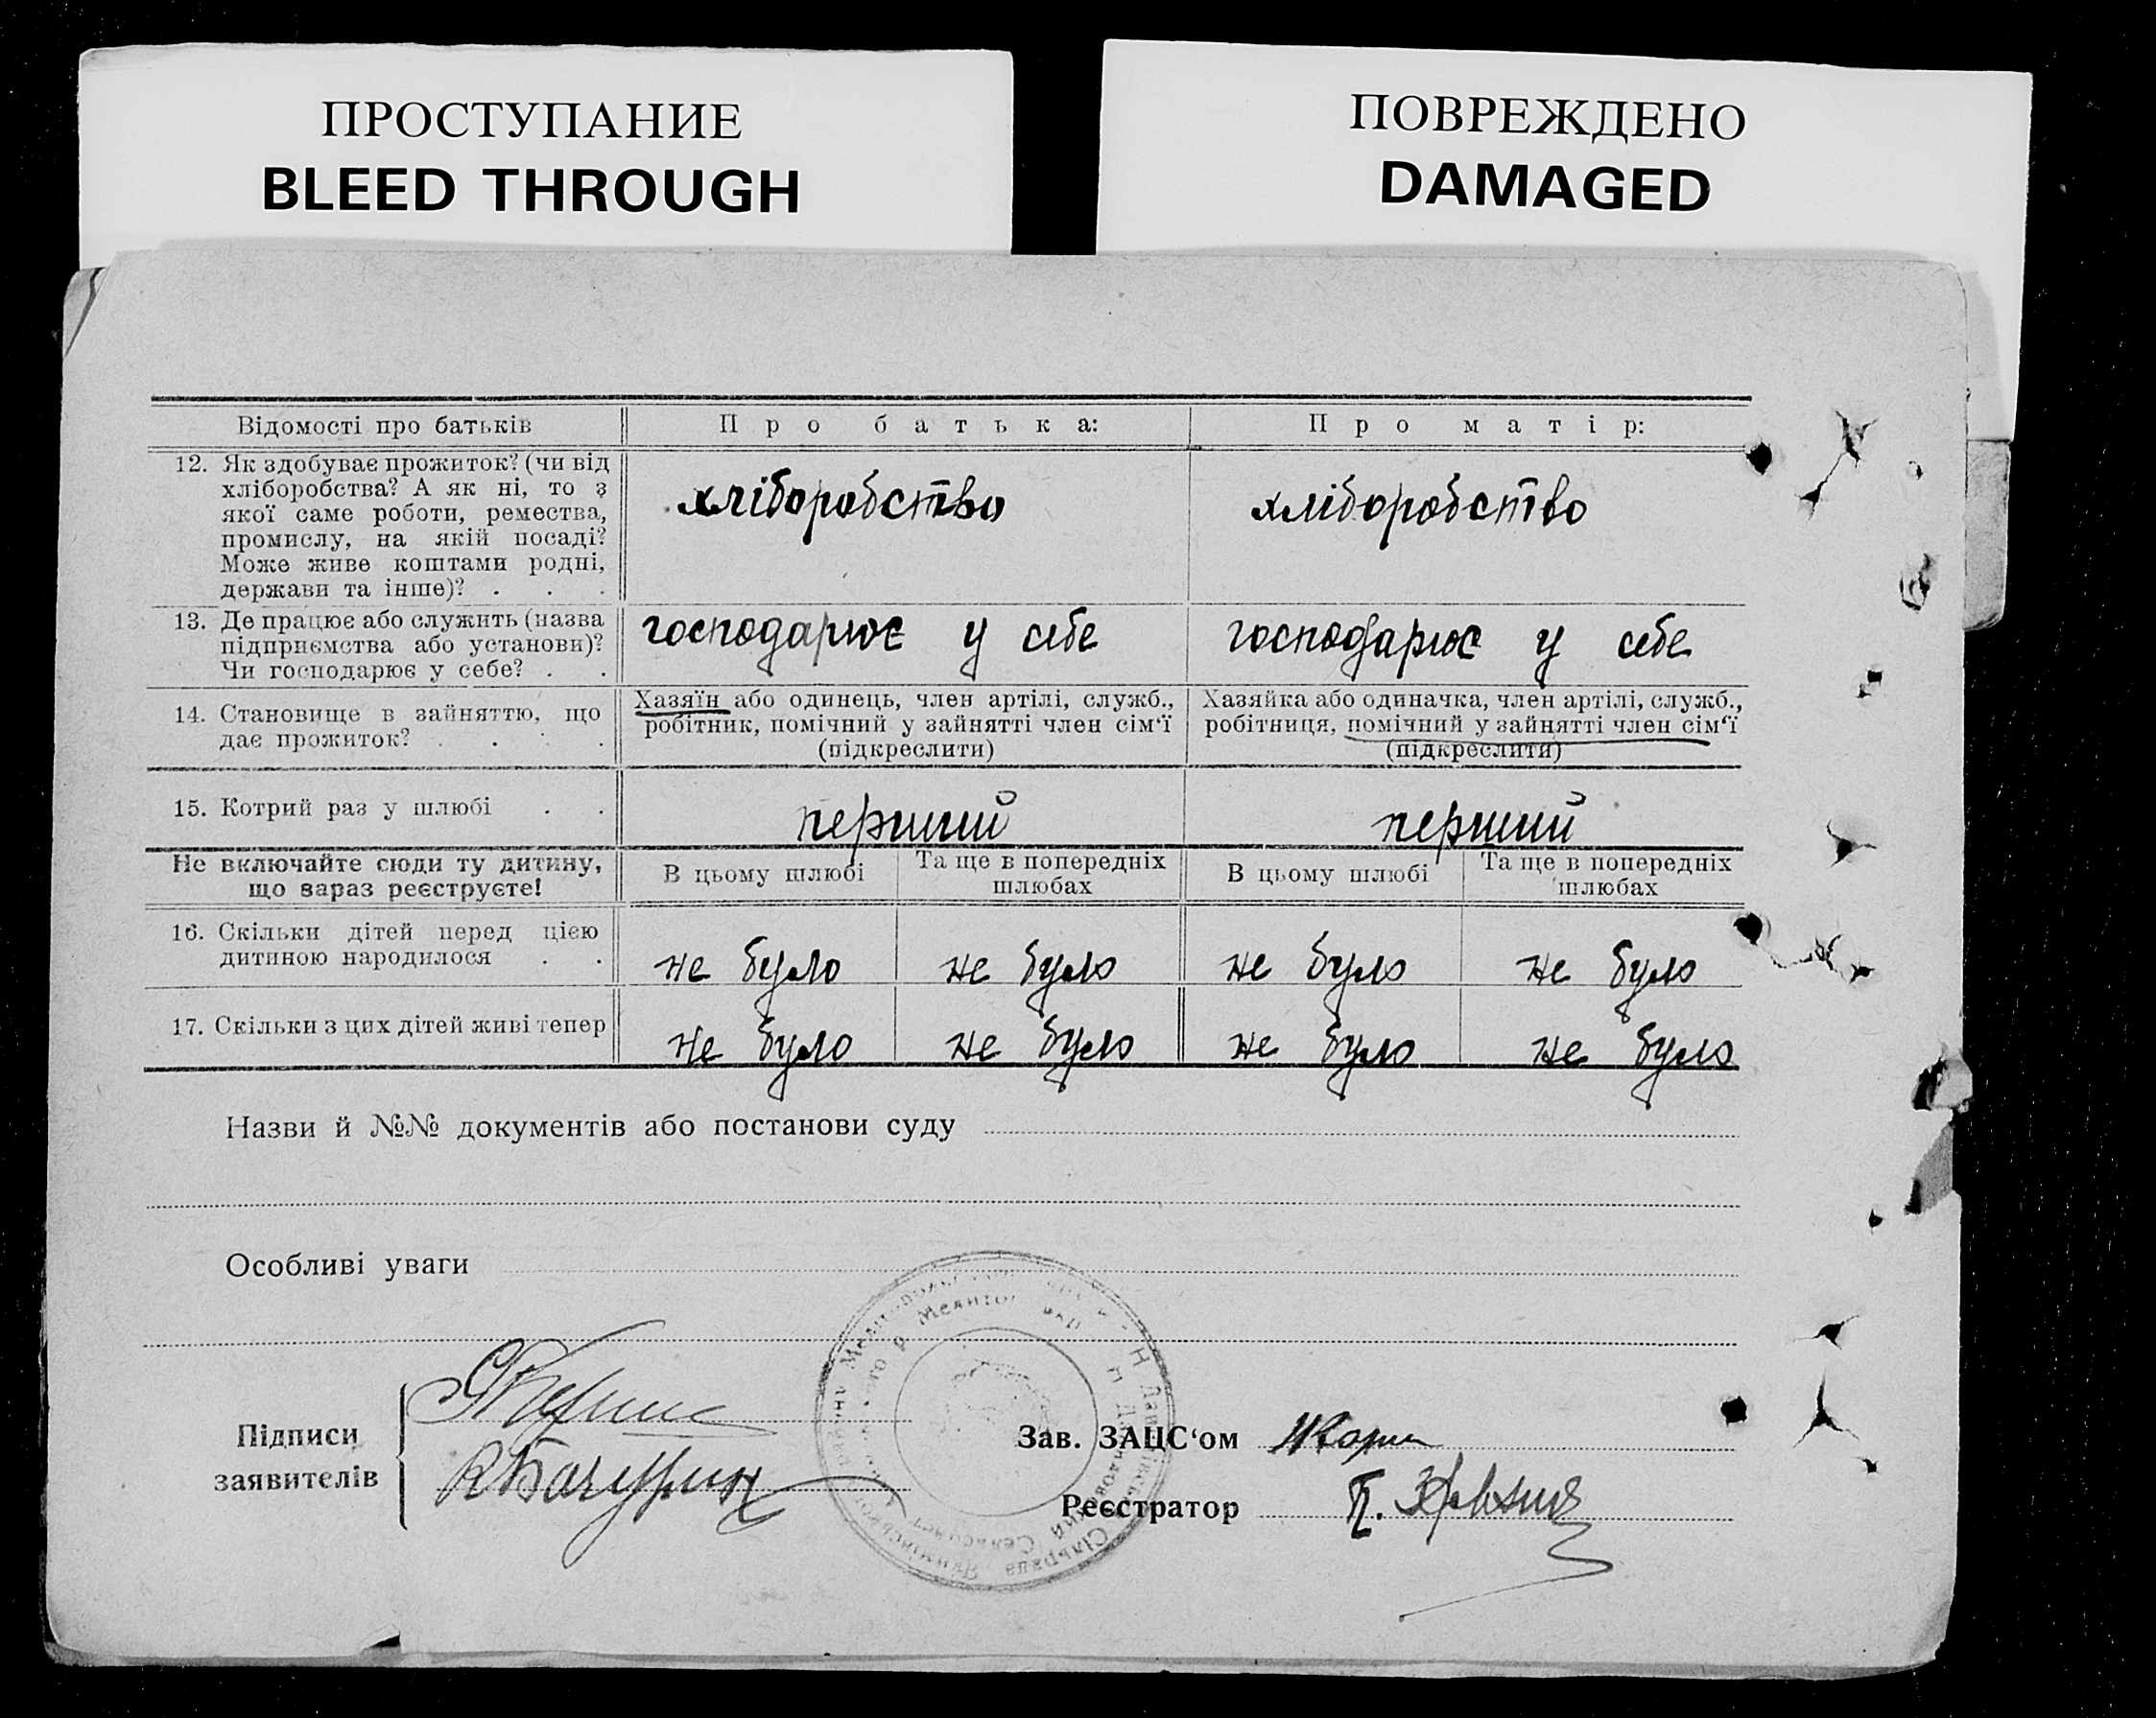 ПРОСТУПАНИЕ
BLEED THROUGH
ПОВРЕЖДЕНО
DAMAGED
Відомості про батьків
Про батька:
Про матір:
12. Як здобуває прожиток? (чи від
хліборобства? А як ні, то з
якої саме роботи, ремества,
промислу, на якій посаді?
Може живе коштами родні,
держави та інше)? . . .
хліборобство
хліборобство
13. Де працює або служить (назва
підприємства або установи)?
Чи господарює у себе? . .
господарює у себе
господарює у себе
14. Становище в зайняттю, що
дає прожиток? . . . .
Хазяїн або одинець, член артілі, служб.,
робітник, помічний у зайнятті член сім‘ї
(підкреслити)
Хазяйка або одиначка, член артілі, служб.,
робітниця, помічний у зайнятті член сім‘ї
(підкреслити)
15. Котрий раз у шлюбі . .
перший
перший
Не включайте сюди ту дитину,
що зараз реєструєте!
В цьому шлюбі
Та ще в попередніх
шлюбах
В цьому шлюбі
Та ще в попередніх
шлюбах
16. Скільки дітей перед цією
дитиною народилося . .
не було
не було
не було
не було
17. Скільки з цих дітей живі тепер
не було
не було
не було
не було
Назви й №№ документів або постанови суду
Особливі уваги
Підписи
заявителів
Зав. ЗАЦС‘ом
Реєстратор